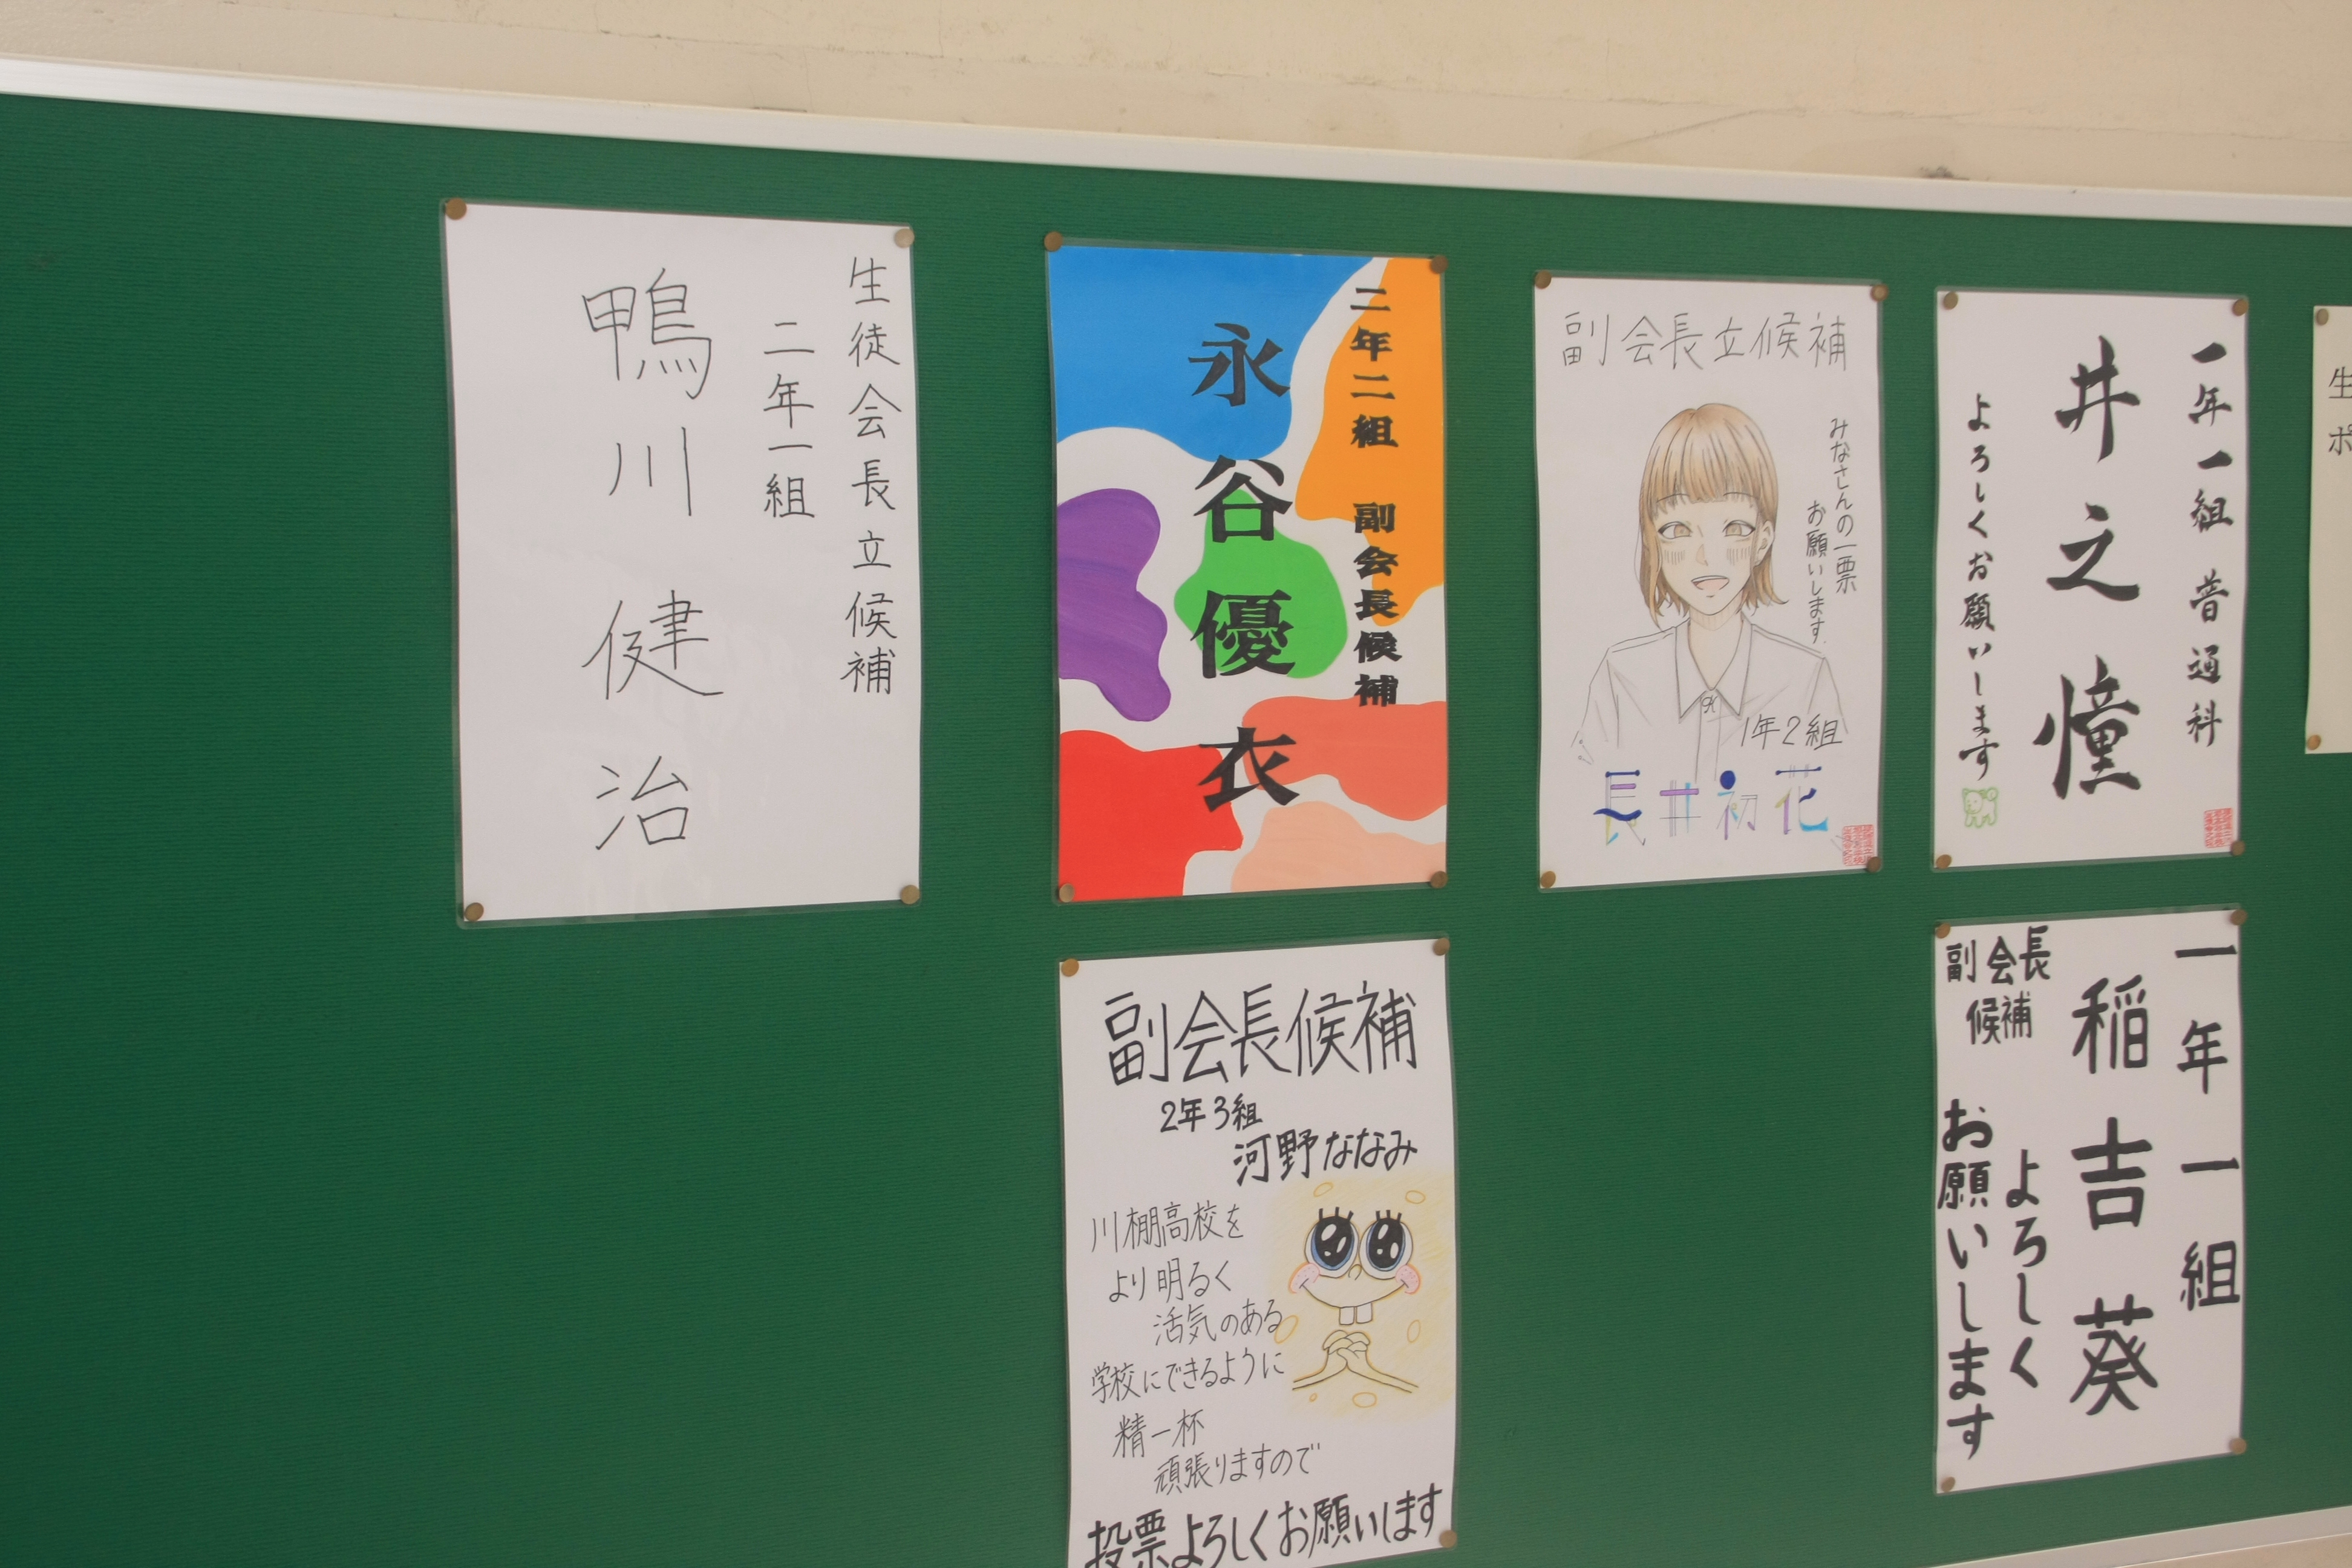 生徒会長立候補
二年一組
鴨川健治
二年二組 副会長候補
永谷優衣
副会長立候補
みなさんの一票
お願いします.
1年2組
長井初花
一年一組 普通科
井之憧
よろしくお願いします
生
ポ
副会長候補
2年3組
河野ななみ
川棚高校を
より明るく
活気のある
学校にできるように
精一杯
頑張りますので
投票よろしくお願いします
一年一組
稲吉葵
副会長
候補
よろしく
お願いします